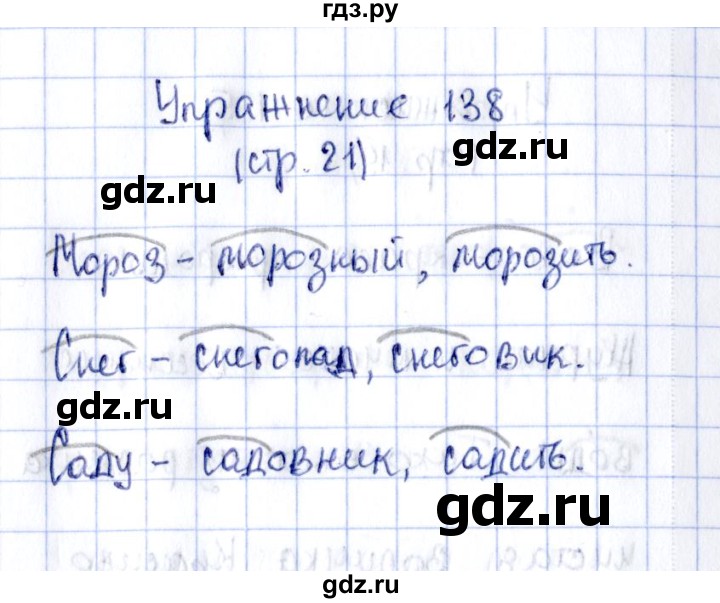 гдз.ру
Упражнение 138
(стр. 21)
gdz.ru
gdz.ru
Мороз - морозный, морозить.
Снег - снегопад, снеговик.
gdz.ru
Саду - садовник, садить.
gdz.ru
gdz.ru